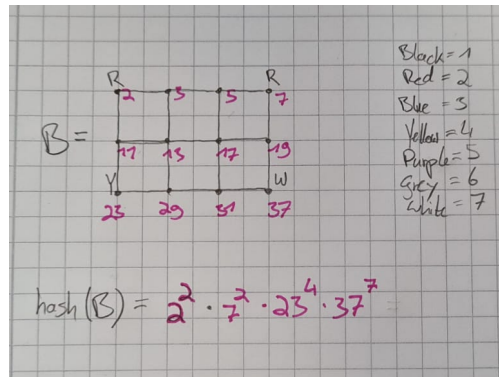 Black = 1
Red = 2
Blue = 3
Yellow = 4
Purple = 5
Grey = 6
White = 7
R R
2 3 5 7
B =
11 13 17 19
Y W
23 29 31 37
hash(B) = 2² · 7² · 23⁴ · 37⁷ =